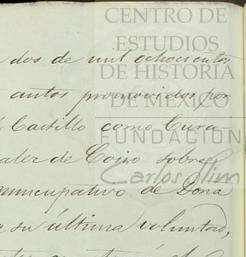 CENTRO DE
ESTUDIOS
DE HISTORIA
DE MÉXICO
FUNDACIÓN
Carlos Slim
dos de mil ochocientos
autos promovidos por
Castillo como Cura
de Cojo sobre
nuncupativo de Dona
su última voluntad,